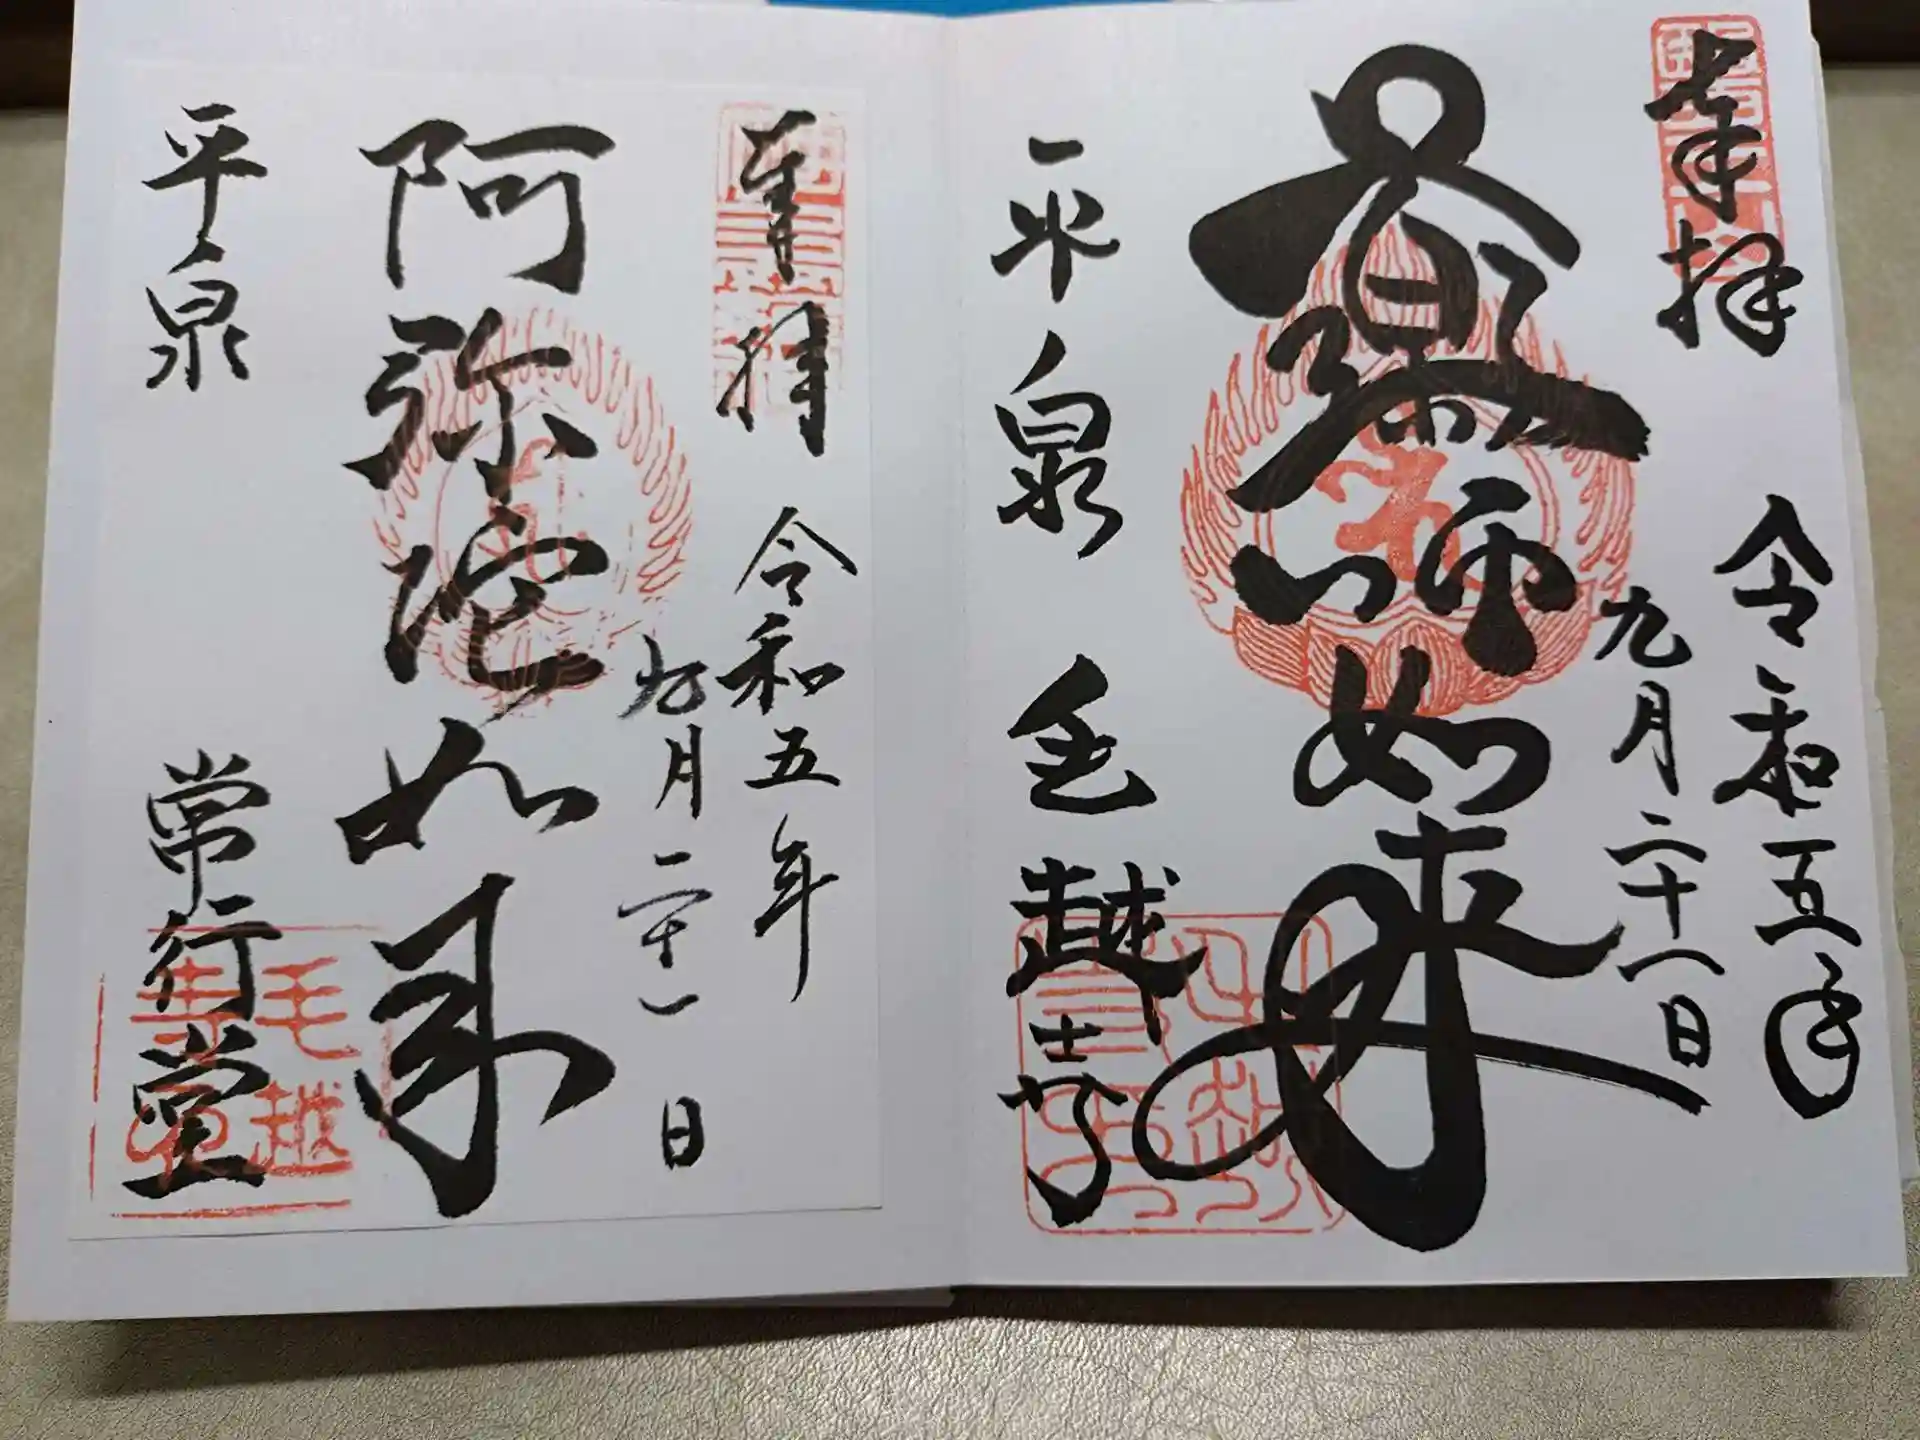 奉拝
令和五年
九月二十一日
薬師如来
平泉 毛越寺
奉拝
令和五年
九月二十一日
阿弥陀如来
平泉 常行堂
毛越